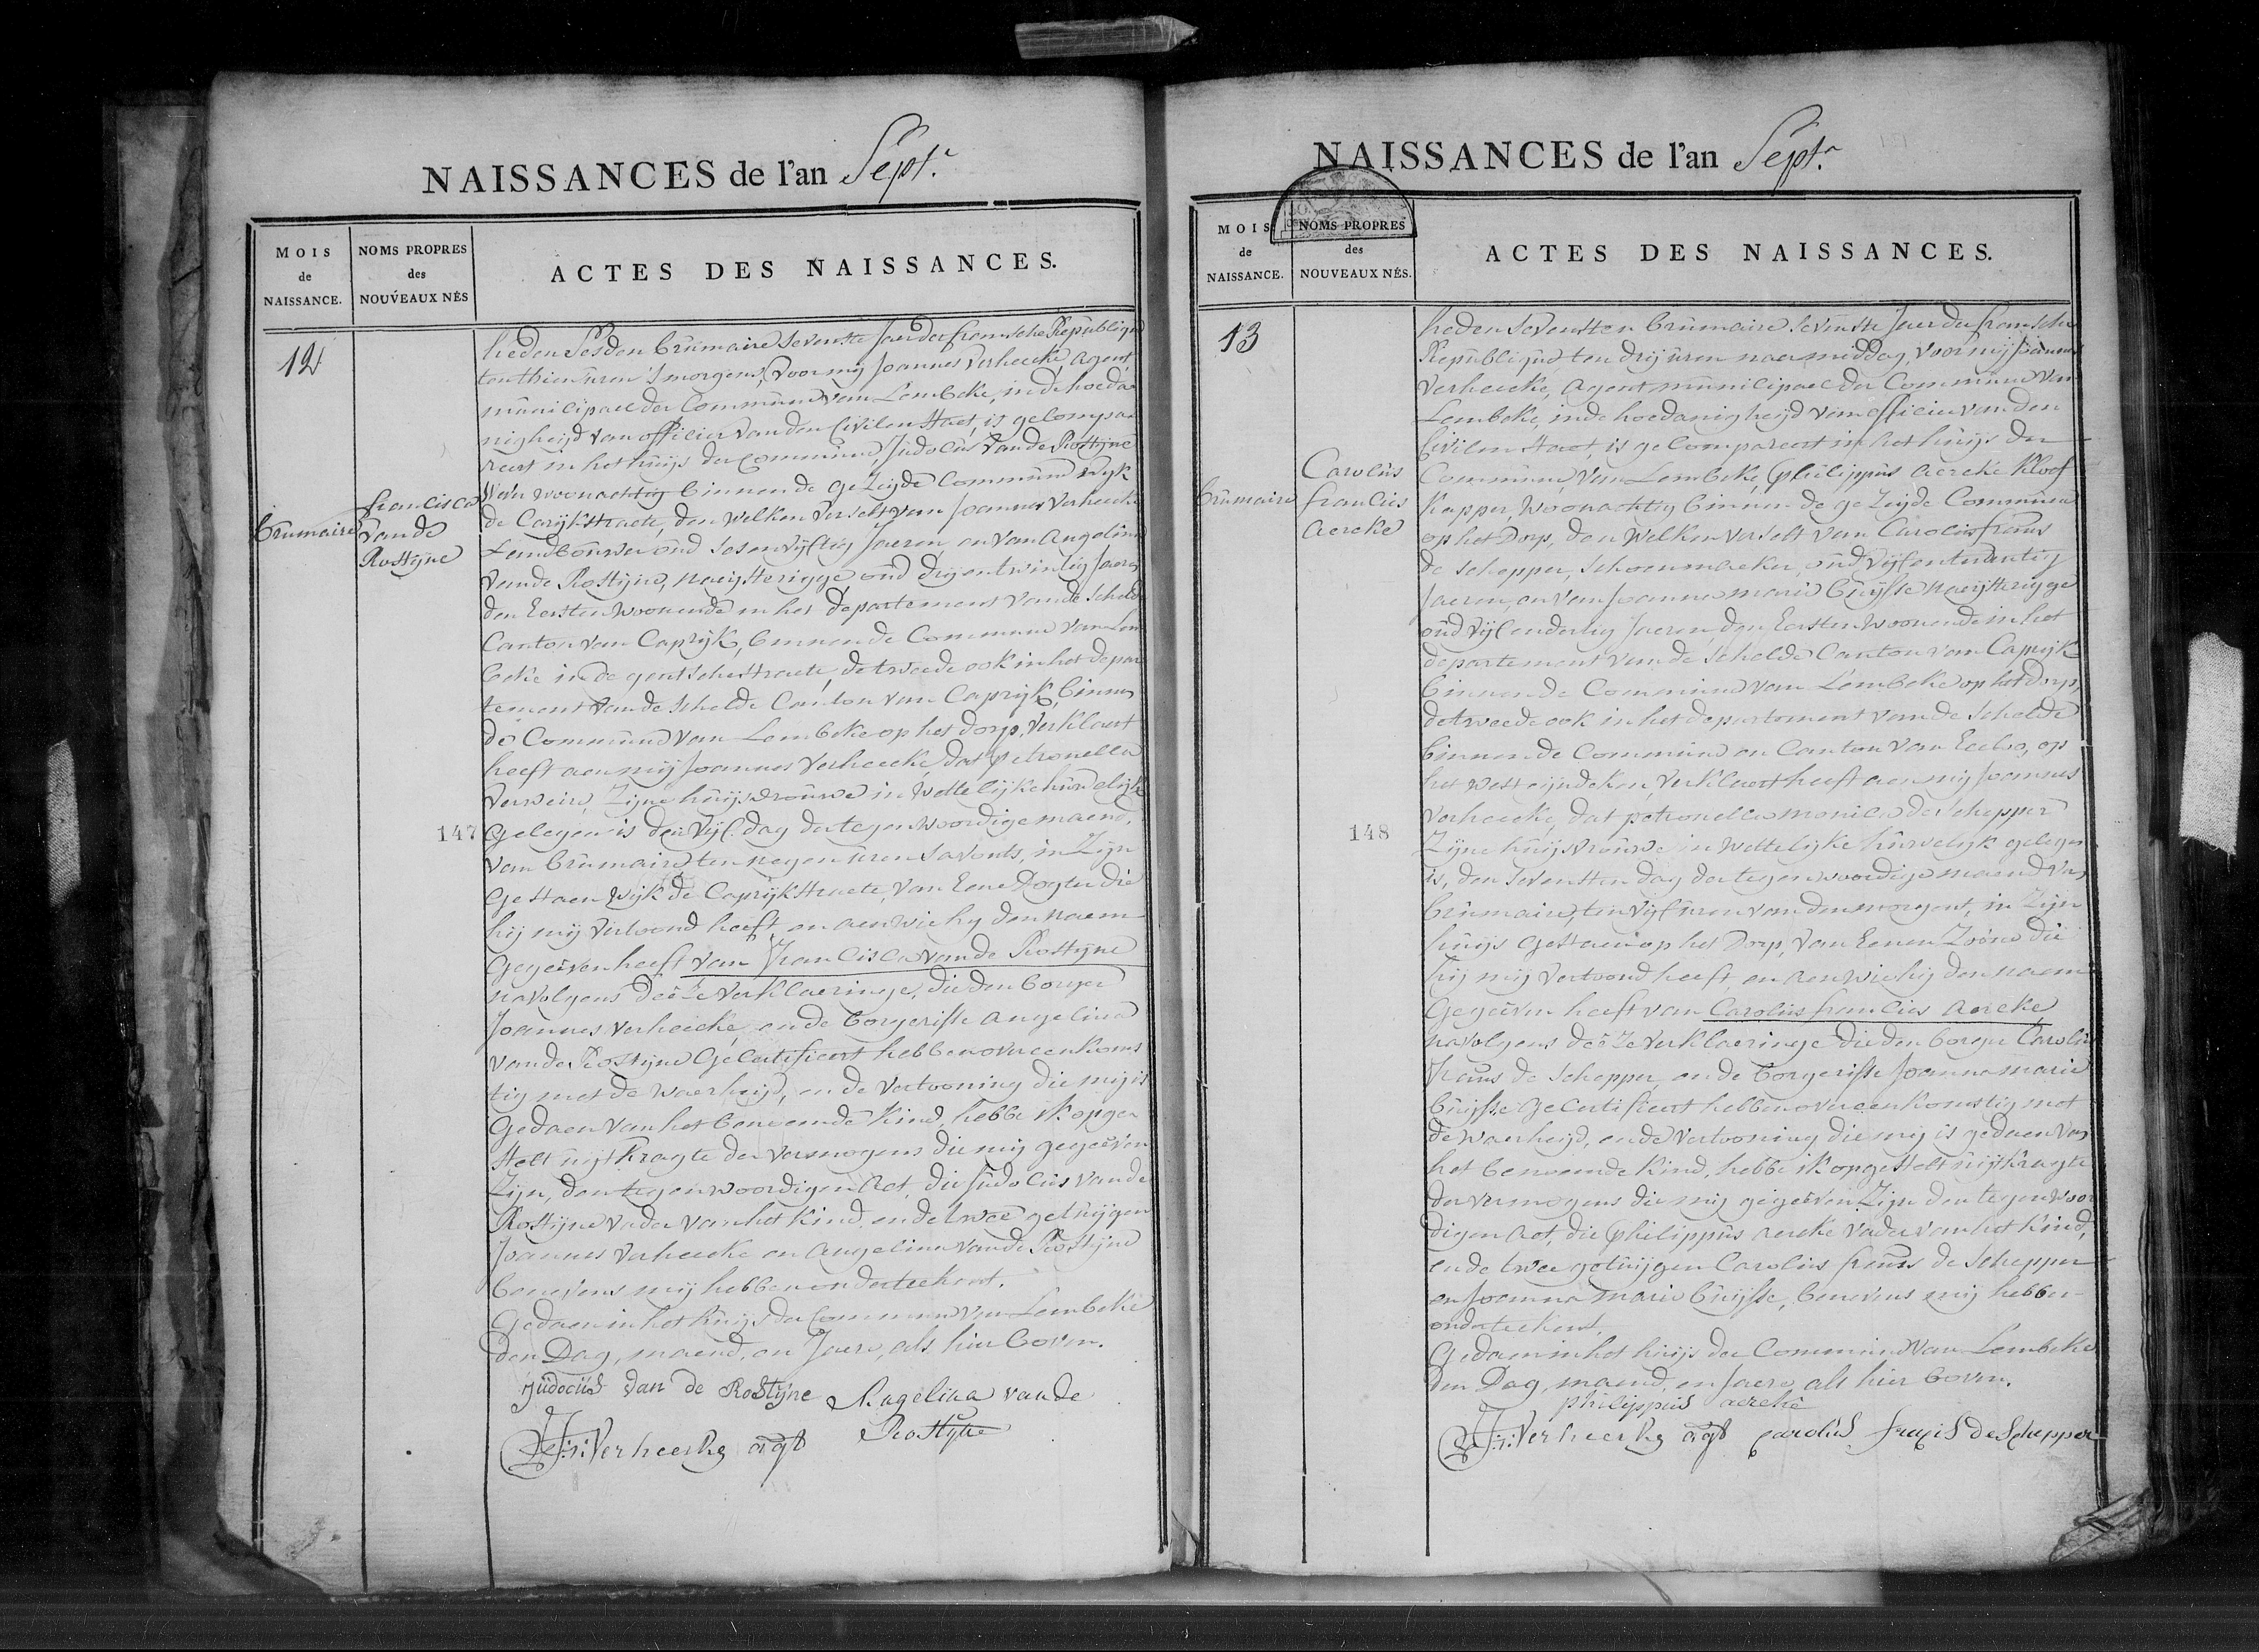 NAISSANCES de l'an Sept.e
MOIS
de
NAISSANCE.
NOMS PROPRES
des
NOUVEAUX NÉS
ACTES DES NAISSANCES.
12
Brumaire
francisca
van de
Rostijne
147
heden Sesden brumaire Sevenste Jaer der fransche Republique
ten thien uren 's morgens, voor mij Joannes Verheecke, agent
municipael der Commune van Lembeke, in de hoeda
nigheijd van officier van den Civilen Staet, is gecompa
reert in het huijs der Commune, Judocus Van de Rostijne
woonachtig binnen de gezeijde Commune wijk
de Caprijkstraete, den welken verselt van Joannes Verheecke
Landbouwer oud sesenvijftig Jaeren, en van Angelina
van de Rostijne, naeijsterigge oud drijentwintig Jaeren
den Eersten woonende in het departement van de Schelde
Canton van Caprijk, binnen de Commune van Lem
beke in de gentsche straete, de tweede ook in het depar
tement van de Schelde Canton van Caprijk, binnen
de Commune van Lembeke op het dorp, verklaert
heeft aen mij Joannes Verheecke, dat petronella
Zijne huijsvrouwe in wettelijke huwelijk
gelegen is den vijf. dag der tegenwoordige maend,
van brumaire, ten negen uren savonts, in Zijn
gestaen wijk de Caprijkstraete, van Eene Dogter die
hij mij vertoond heeft en aen wie hij den naem
gegeêven heeft van Francisca van de Rostijne
navolgens deêze verklaeringe, die den borger
Joannes Verheecke, en de borgerisse Angelina
van de Rostijne gecertifieert hebben overeenkoms
tig met de waerheijd, en de vertooning die mij is
gedaen van het benoemde kind, hebbe ik opge
stelt uijt kragte der vermogens die mij gegeêven
Zijn, den tegenwoordigen act, die Judocus van de
Rostijne vader van het kind, en de twee getuijgen
Joannes Verheecke en Angelina van de Rostijne
benevens mij hebben onderteekent.
Gedaen in het huijs der Commune van Lembeke
den Dag, maend, en Jaere, als hier boven.
Judocus van de Rostijne Angelina van de
Rostijne
J: Verheecke agt
NAISSANCES de l'an Sept.e
MOIS
de
NAISSANCE.
NOMS PROPRES
des
NOUVEAUX NÉS.
ACTES DES NAISSANCES.
13
Brumaire
Carolus
francies
aercke
148
heden Sevensten brumaire Sevenste Jaer der fransche
Republique ten drij uren naermiddag, voor mij Joannes
Verheecke, Agent municipael der Commune van
Lembeke, in de hoedanigheijd van officier van den
Civilen Staet, is gecompareert in het huijs der
Commune van Lembeke, philippus aercke kloef
kapper, woonachtig binnen de gezeijde Commune
op het Dorp, den welken verselt van Carolus frans
de schepper, schoenmaeker, oud vijfentwintig
Jaeren, en van Joanna marie buijsse naeijsterigge
oud vijfendertig Jaeren, den Eersten woonende in het
departement van de schelde Canton van Caprijk
binnen de Commune van Lembeke op het dorp,
de tweede ook in het departement van de Schelde
binnen de Commune en Canton van Eecloo, op
het westeijndeken, verklaert heeft aen mij Joannes
Verheecke, dat petronella monica de schepper
Zijne huijsvrouwe in wettelijke huwelijk gelegen
is, den sevensten dag der tegenwoordige maend van
brumaire, ten vijf uren van den morgent, in Zijn
huijs gestaen op het Dorp, van Eenen Zoone die
hij mij vertoond heeft, en aen wie hij den naem
gegeêven heeft van Carolus francies aercke
navolgens deêze verklaeringe die den borger Carolus
frans de schepper, en de borgerisse Joanna marie
buijsse gecertifieert hebben overeenkomstig met
de waerheijd, en de vertooning die mij is gedaen van
het benoemde kind, hebbe ik opgestelt uijt kragte
der vermogens die mij gegeêven Zijn den tegenwoor
digen act, die philippus aercke vader van het kind,
en de twee getuijgen Carolus frans de schepper
en Joanna marie buijsse, benevens mij hebben
onderteekent.
Gedaen in het huijs der Commune van Lembeke
den Dag, maend, en Jaere, als hier boven.
philippus aercke
J: Verheecke agt carolus francis de Schepper